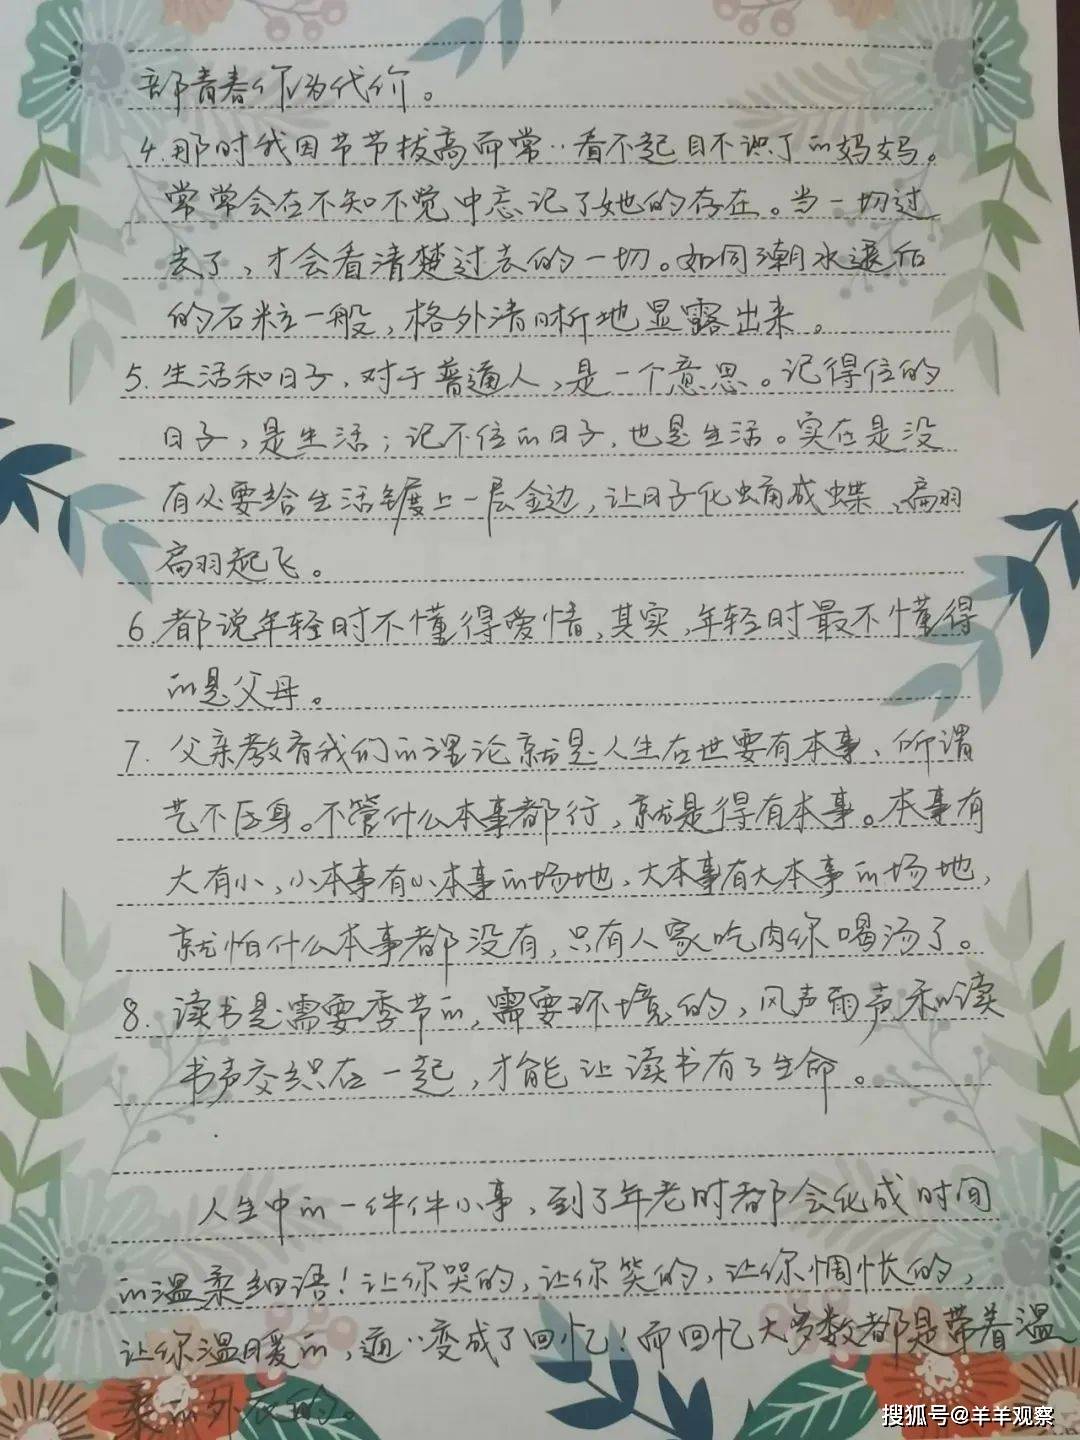 部青春作为代价。
4.那时我因节节拔高而常‥看不起目不识丁的妈妈。
常常会在不知不觉中忘记了她的存在。当一切过
去了,才会看清楚过去的一切。如同潮水退后
的石粒一般,格外清晰地显露出来。
5.生活和日子,对于普通人,是一个意思。记得住的
日子,是生活;记不住的日子,也是生活。实在是没
有必要给生活镀上一层金边,让日子化蛹成蝶,扇羽
扇羽起飞。
6.都说年轻时不懂得爱情,其实,年轻时最不懂得
的是父母。
7.父亲教育我们的理论就是人生在世要有本事、所谓
艺不压身。不管什么本事都行,就是得有本事。本事有
大有小,小本事有小本事的场地,大本事有大本事的场地,
就怕什么本事都没有,只有人家吃肉你喝汤了。
8.读书是需要季节的,需要环境的,风声雨声和读
书声交织在一起,才能让读书有了生命。
人生中的一件件小事,到了年老时都会化成时间
的温柔细语!让你哭的,让你笑的,让你惆怅的,
让你温暖的,通‥变成了回忆!而回忆大多数都是带着温
柔的外衣的。
搜狐号@羊羊观察